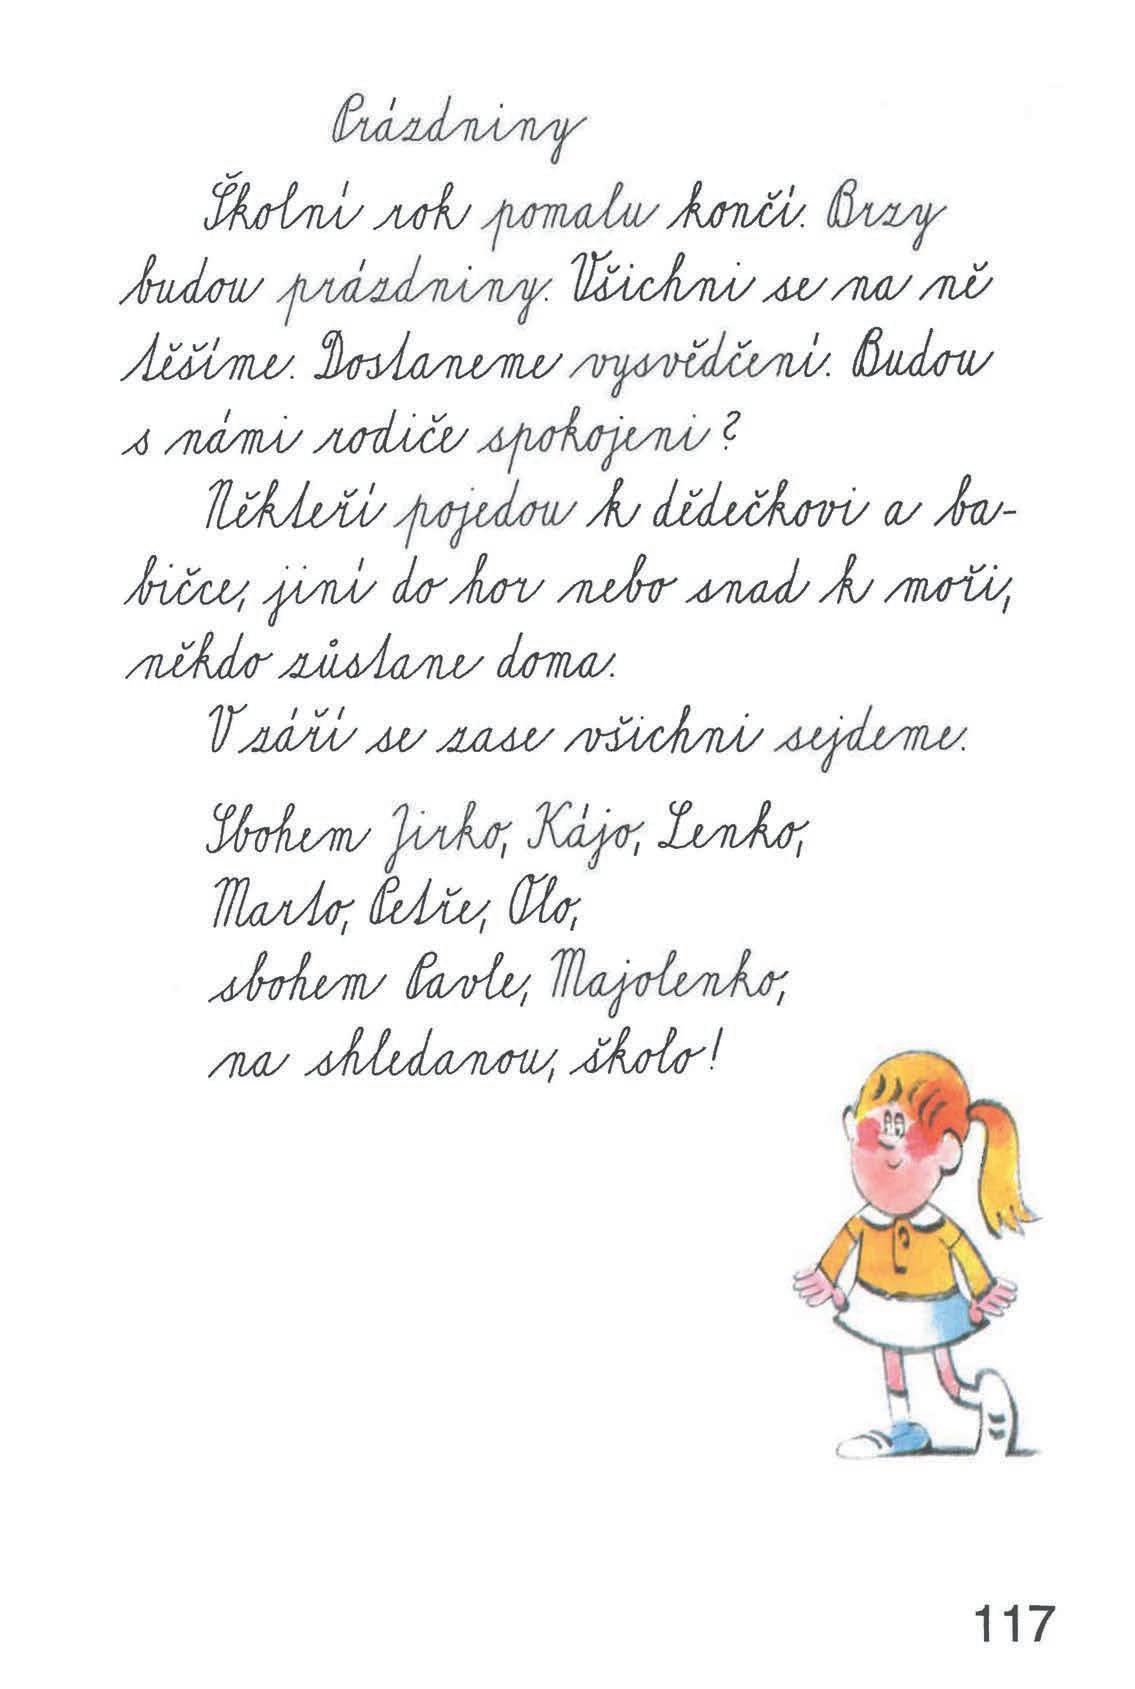 Prázdniny
Školní rok pomalu končí. Brzy
budou prázdniny. Všichni se na ně
těšíme. Dostaneme vysvědčení. Budou
s námi rodiče spokojeni?
Někteří pojedou k dědečkovi a ba-
bičce, jiní do hor nebo snad k moři,
někdo zůstane doma.
V září se zase všichni sejdeme.
Sbohem Jirko, Kájo, Lenko,
Marto, Petře, Olo,
sbohem Pavle, Majolenko,
na shledanou, školo!
117